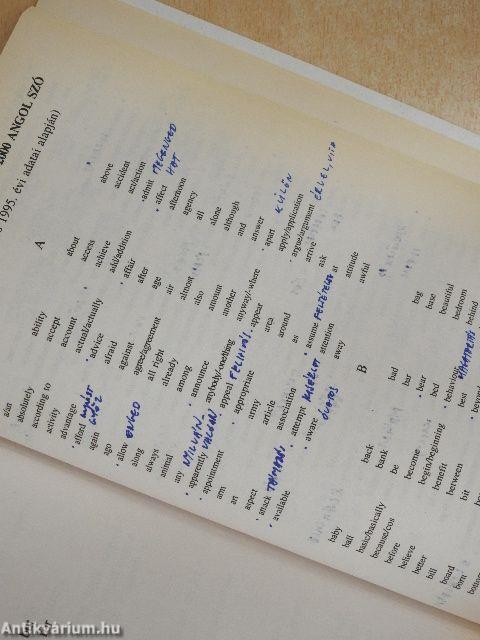 2000 ANGOL SZÓ
1995. évi adatai alapján)
A
a/an ability about above
absolutely accept access accident
according to account achieve act/action
activity actual/actually add/addition admit MEGENGED
advantage advice affair affect HAT
afford afraid after afternoon
again GYŐZ against age agency
ago agree/agreement air all
allow ENGED all right almost alone
along already also although
always among amount and
animal announce another answer
any anybody/-onething anyway/-where apart KÜLÖN
apparently NYILVÁN appeal FELHÍVÁS appear apply/application
appointment appropriate area argue/argument ÉRVEL, VITA
arm army around arrive
art article as ask
aspect association assume FELTÉTELEZ at
attack TÁMADÁS attempt KÍSÉRLET attention attitude
available aware away awful
B
baby back bad bag
ball bank bar base
basic/basically be bear beautiful
because/cos become bed bedroom
before begin/beginning behaviour behind
believe benefit best
better between
bill bit
board
born
bottom
Antikvárium.hu